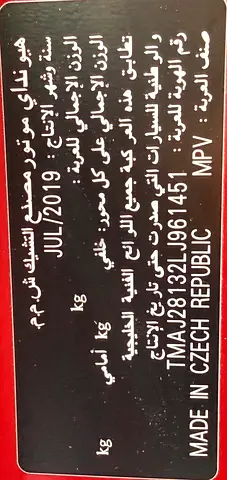 هيونداي موتور مصنع التشيك ش.م.م.
سنة وشهر الإنتاج : JUL/2019
الوزن الإجمالي للعربة : kg
الوزن الإجمالي على كل محور: خلفي kg أمامي kg
تطابق هذه المركبة جميع اللوائح الفنية الخليجية
والوطنية للسيارات التي صدرت حتى تاريخ الإنتاج
رقم الهوية للعربة : TMAJ28132LJ961451
صنف العربة : MPV
MADE IN CZECH REPUBLIC